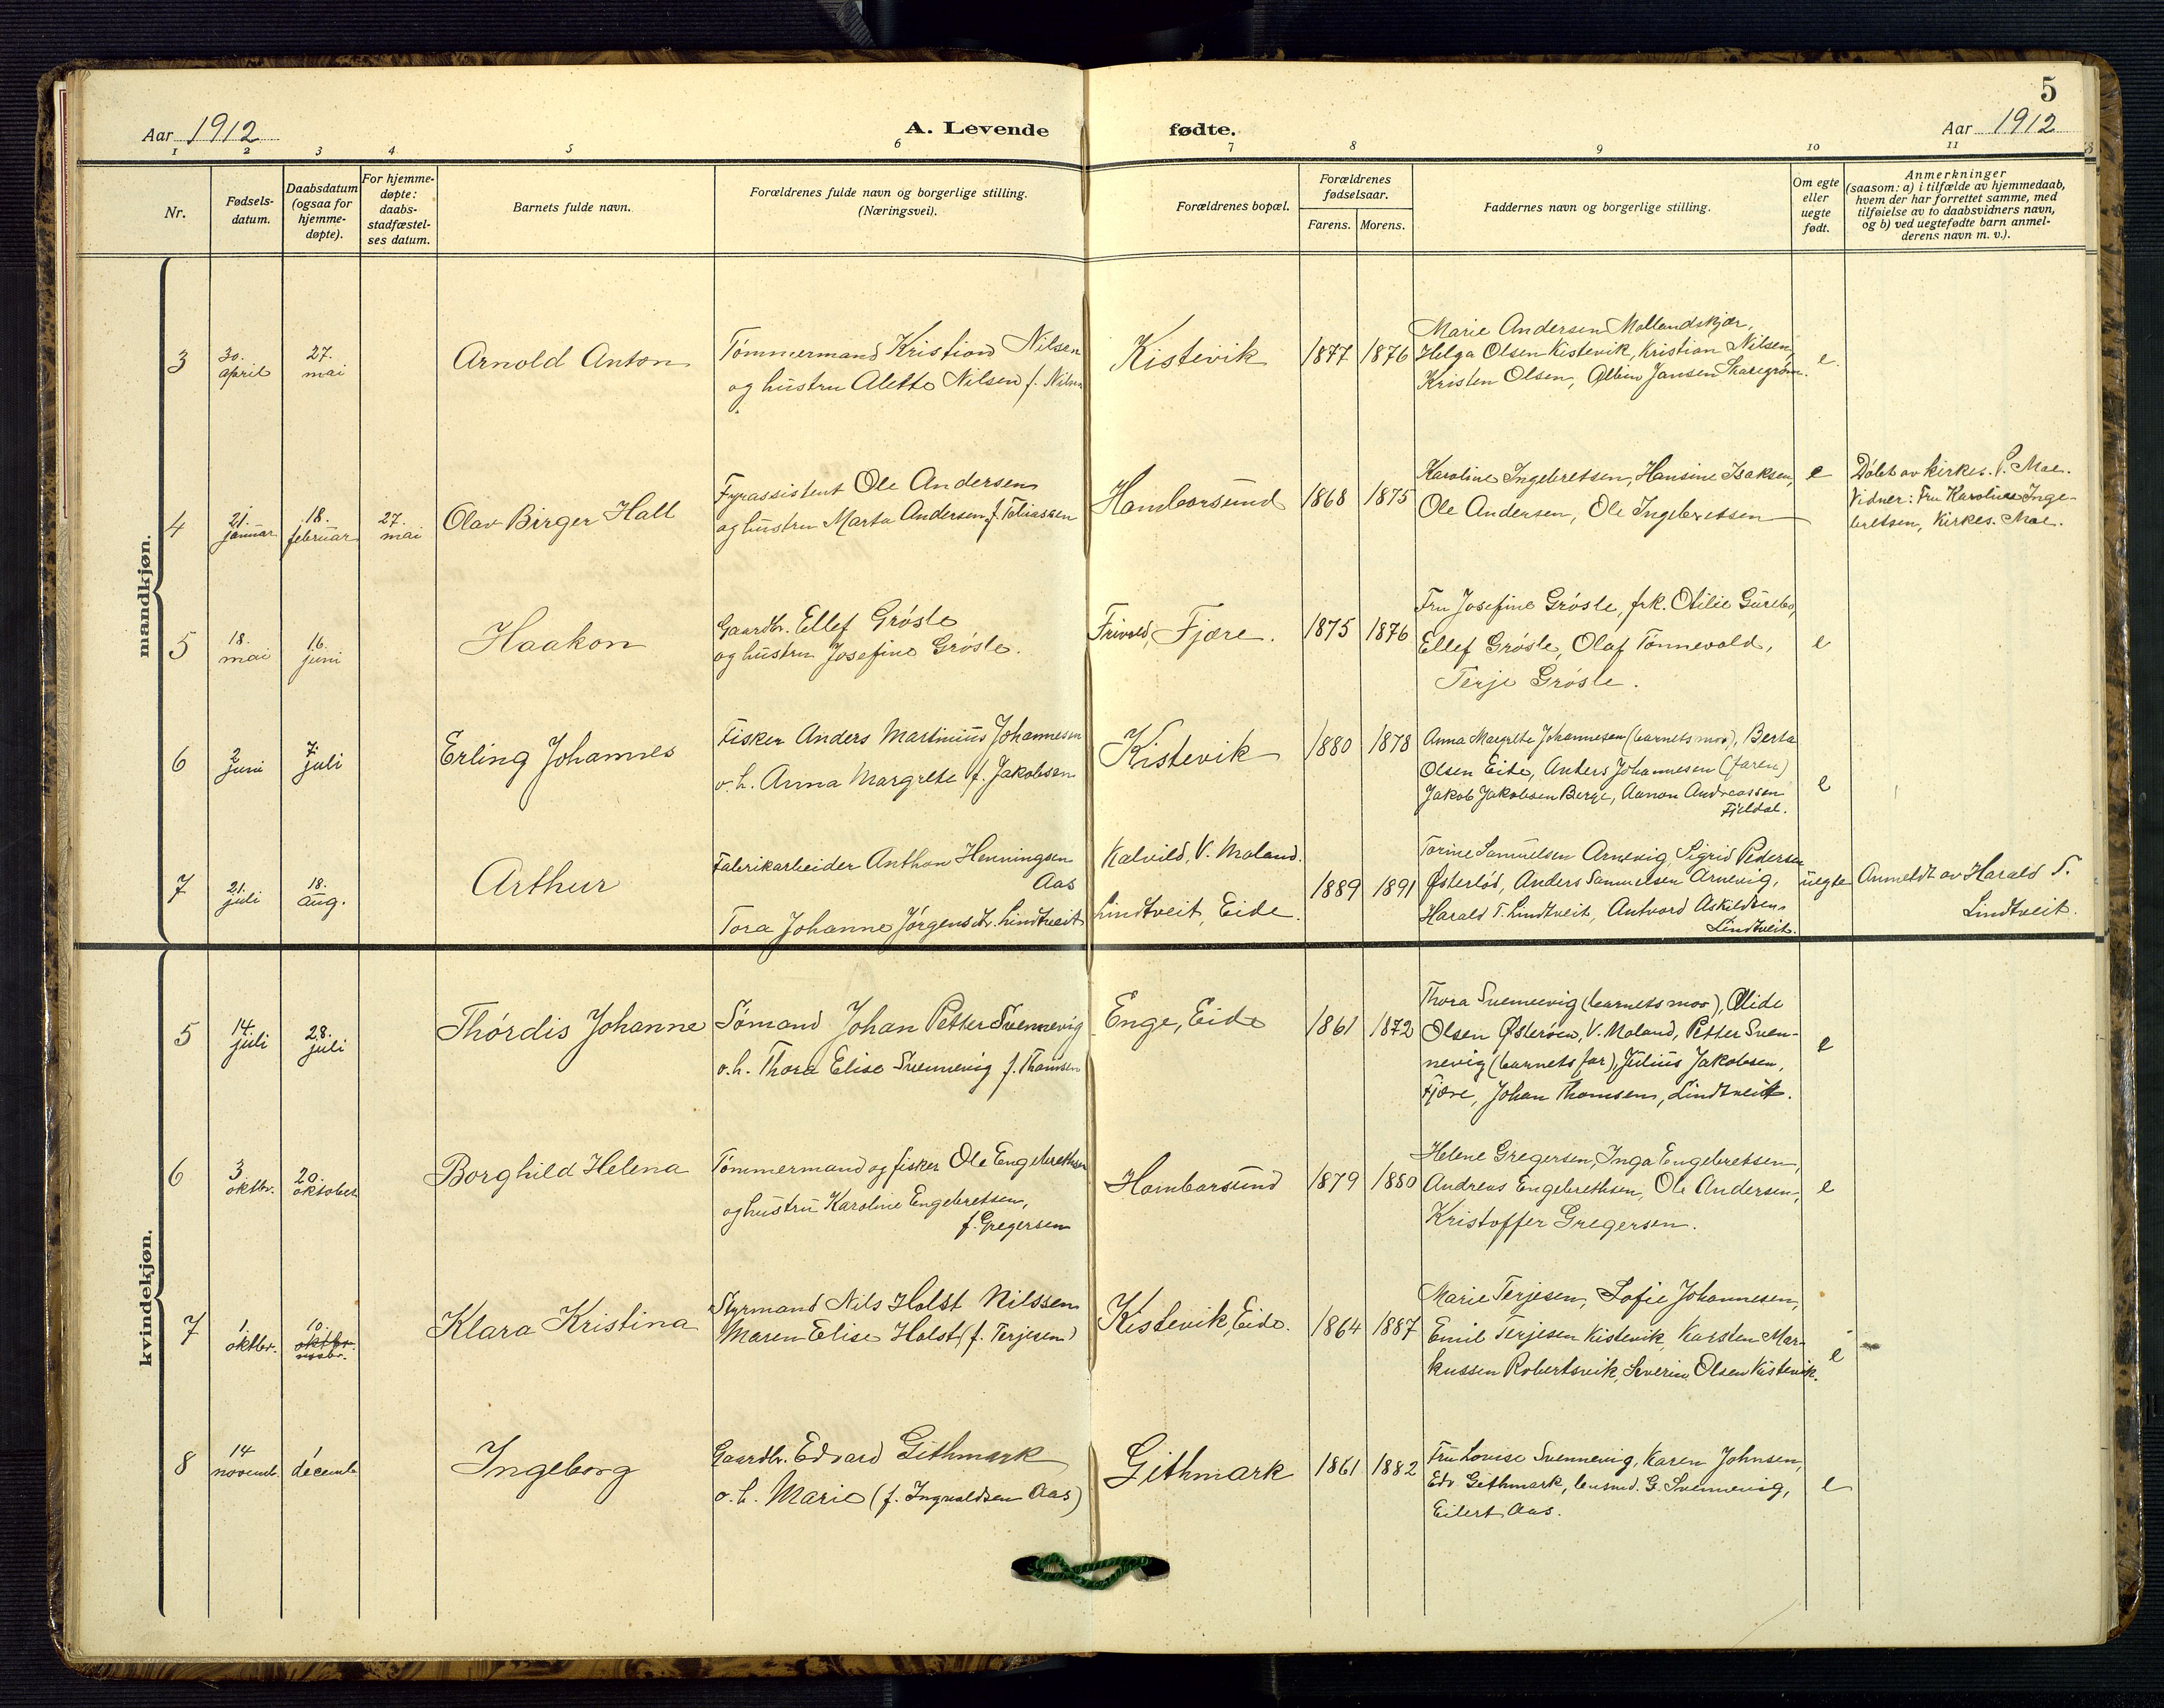 5
Aar 1912
A. Levende fødte.
Aar 1912
1 2 3 4 5 6 7 8 9 10 11
Nr.
Fødsels-
datum.
Daabsdatum
(ogsaa for
hjemme-
døpte).
For hjemme-
døpte:
daabs-
stadfæstel-
ses datum.
Barnets fulde navn.
Forældrenes fulde navn og borgerlige stilling.
(Næringsvei).
Forældrenes bopæl.
Forældrenes
fødselsaar.
Farens. Morens.
Faddernes navn og borgerlige stilling.
Om egte
eller
uegte
født.
Anmerkninger
(saasom: a) i tilfælde av hjemmedaab,
hvem der har forrettet samme, med
tilføielse av to daabsvidners navn,
og b) ved uegtefødte barn anmel-
derens navn m. v.).
mandkjøn.
3
30.
april
27.
mai
Arnold Anton
Tømmermand Kristian Nilsen
og hustru Alette Nilsen f. Nilsen
Kistevik
1877 1876
Marie Andersen Mollandskjær,
Helga Olsen Kistevik, Kristian Nilsen,
Kristen Olsen, Jansen
e.
4
21.
januar
18.
februar
27.
mai
Olav Birger Hall
Fyrassistent Ole Andersen
og hustru Marta Andersen f. Tobiassen
Hamborsund
1868 1875
Karoline Ingebretsen, Hansine Isaksen,
Ole Andersen, Ole Ingebretsen
e
Døbt av kirkes. P. Moe.
Vidner: Fru Karoline Inge-
bretsen, Kirkes. Moe.
5
18.
mai
16.
juni
Haakon
Gaardbr. Ellef Grøsle
og hustru Josefine Grøsle.
Frivold, Fjære.
1875 1876
Fru Josefine Grøsle, frk. Otilie
Ellef Grøsle, Olaf Tønnevold,
Terje Grøsle.
e
6
2
juni
7.
juli
Erling Johannes
Fisker Anders Martinius Johannesen
o. h. Anna Margrete f. Jakobsen
Kistevik
1880 1878
Anna Margrete Johannesen (barnets mor), Berta
Olsen Eide, Anders Johannesen (faren)
Jakob Jakobsen Berge, Aanon Andreassen
Fjeldal.
e
7
21.
juli
18.
aug.
Arthur
Fabrikarbeider Anthon Henningsen
Aas
Tora Johanne Jørgensdt. Lindtveit
Kalvild, V. Moland.
Lindtveit, Eide.
1889 1891
Torine Samuelsen Arnevig, Sigrid Pedersen
Østerlød, Anders Samuelsen Arnevig,
Harald T. Lindtveit, Antvord Askildsen
Lindtveit.
uegte
Anmeldt av Harald T.
Lindtveit.
kvindekjøn.
5
14.
juli
28.
juli
Thórdis Johanne
Sømand Johan Petter Svennevig
o. h. Thora Elise Svennevig f. Thomsen
Enge, Eide
1861 1872
Thora Svennevig (barnets mor), Alide
Olsen Østerøen, V. Moland, Petter Sven-
nevig (barnets far), Julius Jakobsen,
Fjære, Johan Thomsen, Lindtveit.
e
6
3.
oktbr.
20.
oktober
Borghild Helena
Tømmermand og fisker Ole Engebrethsen
og hustru Karoline Engebretsen,
f. Gregersen
Hamborsund
1879 1880
Helene Gregersen, Inga Engebretsen,
Andreas Engebrethsen, Ole Andersen,
Kristoffer Gregersen.
e
7
1.
oktbr.
10.
oktbr.
novbr.
Klara Kristina
Styrmand Nils Holst Nilssen
Maren Elise Holst (f. Terjesen)
Kistevik, Eide.
1864 1887
Marie Terjesen, Sofie Johannesen,
Emil Terjesen Kistevik, Karsten Mar-
kussen Robertsvik, Severin Olsen Kistevik.
e
8
14
novemb.
1
decemb
Ingeborg
Gaardbr. Edvard Githmark
o. h. Marie (f. Ingvaldsen Aas)
Githmark
1861 1882
Fru Lovise Svennevig, Karen Johnsen,
Edv. Githmark, lensmd. G. Svennevig,
Eilert Aas.
e